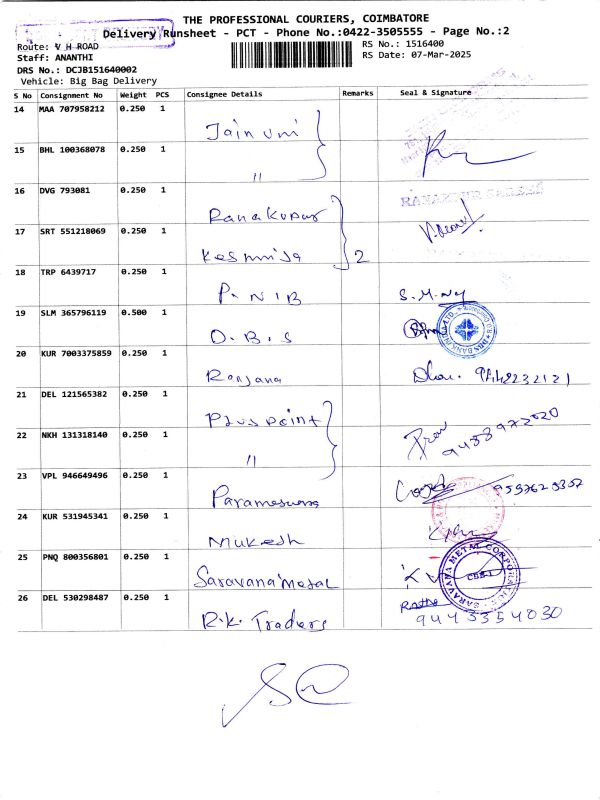 THE PROFESSIONAL COURIERS, COIMBATORE
Delivery Runsheet - PCT - Phone No.:0422-3505555 - Page No.:2
Route: V H ROAD
RS No.: 1516400
Staff: ANANTHI
RS Date: 07-Mar-2025
DRS No.: DCJB151640002
Vehicle: Big Bag Delivery
S No Consignment No Weight PCS Consignee Details Remarks Seal & Signature
14 MAA 707958212 0.250 1
Jain uni
15 BHL 100368078 0.250 1
"
16 DVG 793081 0.250 1
Ranakupur RANAKPUR SAREES
17 SRT 551218069 0.250 1
2
18 TRP 6439717 0.250 1
P. N I B S. M. 
19 SLM 365796119 0.500 1
D. B. S DBS BANK INDIA LTD
20 KUR 7003375859 0.250 1
Ranjana
21 DEL 121565382 0.250 1
Plus point
22 NKH 131318140 0.250 1
"
23 VPL 946649496 0.250 1
24 KUR 531945341 0.250 1
Mukesh
25 PNQ 800356801 0.250 1
Saravana metal SARAVANA METAL CORPORATION CBE-1
26 DEL 530298487 0.250 1
R.K. Traders 9443354030